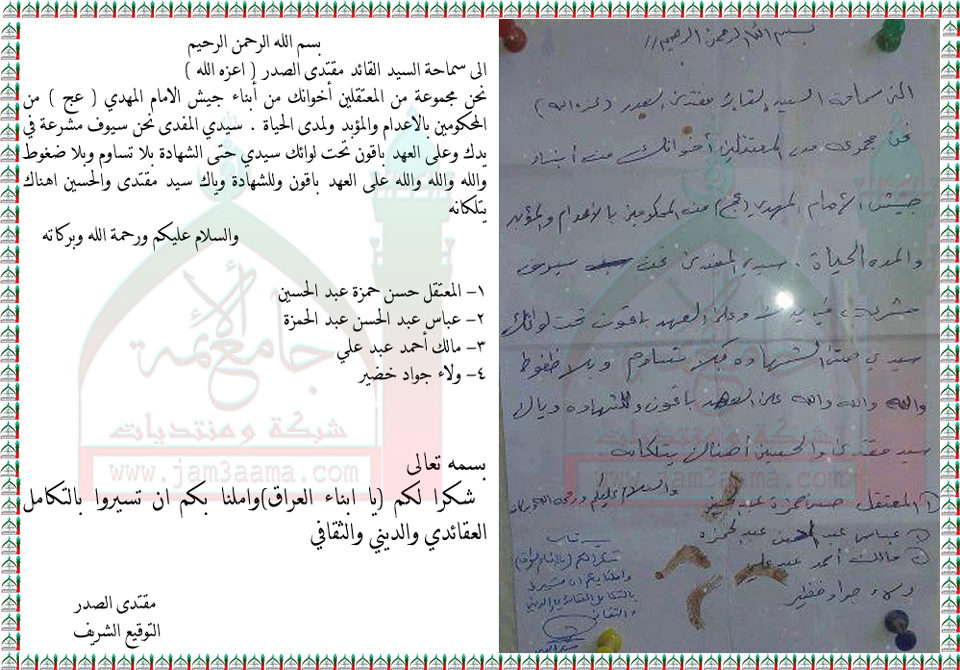 بسم الله الرحمن الرحيم
الى سماحة السيد القائد مقتدى الصدر ( اعزه الله )
نحن مجموعة من المعتقلين أخوانك من أبناء جيش الامام المهدي ( عج ) من
المحكومين بالاعدام والمؤبد ولمدى الحياة . سيدي المفدى نحن سيوف مشرعة في
يدك وعلى العهد باقون تحت لوائك سيدي حتى الشهادة بلا تساوم وبلا ضغوط
والله والله والله على العهد باقون وللشهادة وياك سيد مقتدى والحسين اهناك
يتلكانه
والسلام عليكم ورحمة الله وبركاته
١- المعتقل حسن حمزة عبد الحسين
٢- عباس عبد الحسن عبد الحمزة
٣- مالك أحمد عبد علي
٤- ولاء جواد خضير
بسمه تعالى
شكرا لكم (يا ابناء العراق)واملنا بكم ان تسيروا بالتكامل
العقائدي والديني والثقافي
مقتدى الصدر
التوقيع الشريف
جامع الأئمة
شركة ومنتديات
www.jam3aama.com
بسم الله الرحمن الرحيم //
الى سماحة السيد القائد مقتدى الصدر (اعزه الله)
نحن مجموعه من المعتقلين أخوانك من أبناء
جيش الأمام المهدي (عج) من المحكومين بالأعدام والمؤبد
والمده الحياة . سيدي المفدى نحن سيوف
مشرعه في يدك وعلى العهد باقون تحت لوائك
سيدي حتى الشهاده بلا تساوم وبلا ظغوط
والله والله والله على العهد باقون وللشهاده وياك
سيد مقتدى والحسين أهناك يتلكانه
والسلام عليكم ورحمة الله وبركاته
١ المعتقل حسن حمزة عبد الحسين
٢ عباس عبد الحسن عبد الحمزه
٣ مالك أحمد عبد علي
ولاء جواد خضير
شكرا لكم
واملنا بكم ان تسيروا
بالتكامل العقائدي والديني
والثقافي